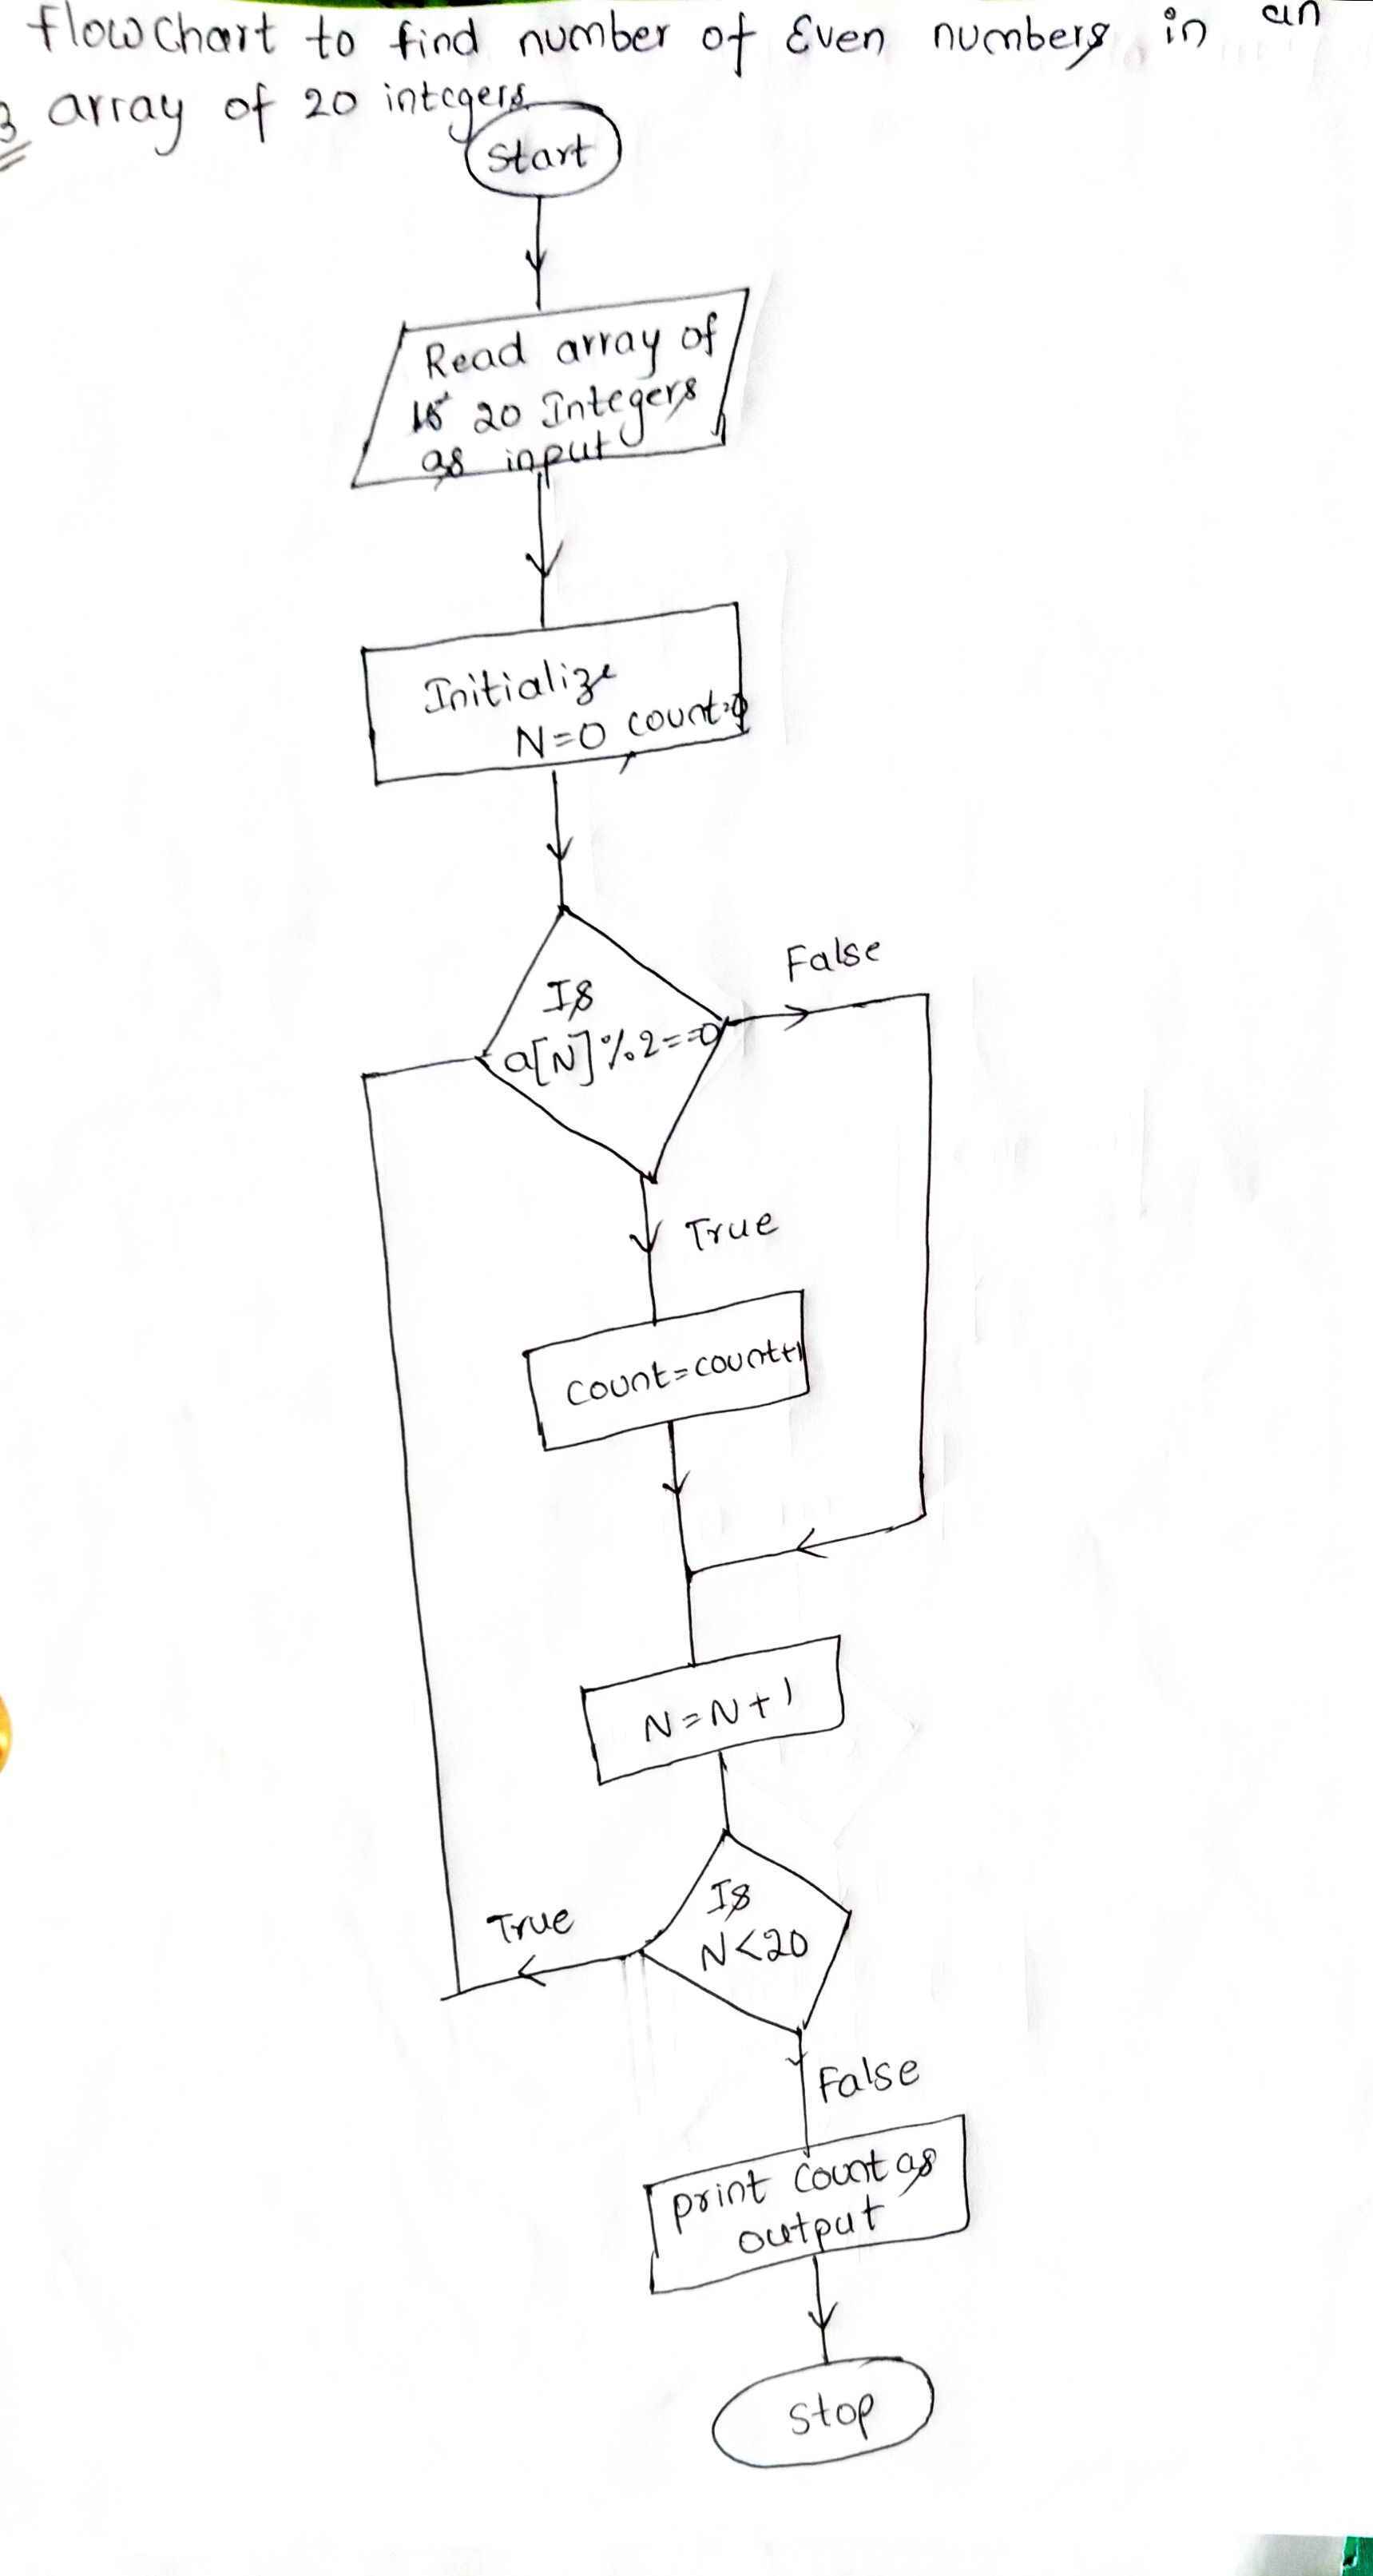 flowchart to find number of Even numbers in an
3 array of 20 integers
Start
Read array of
20 Integers
as input
Initialize
N=0 count=0
Is
a[N]%2==0
False
True
count=count+1
N=N+1
Is
N<20
True
False
print Count as
output
stop